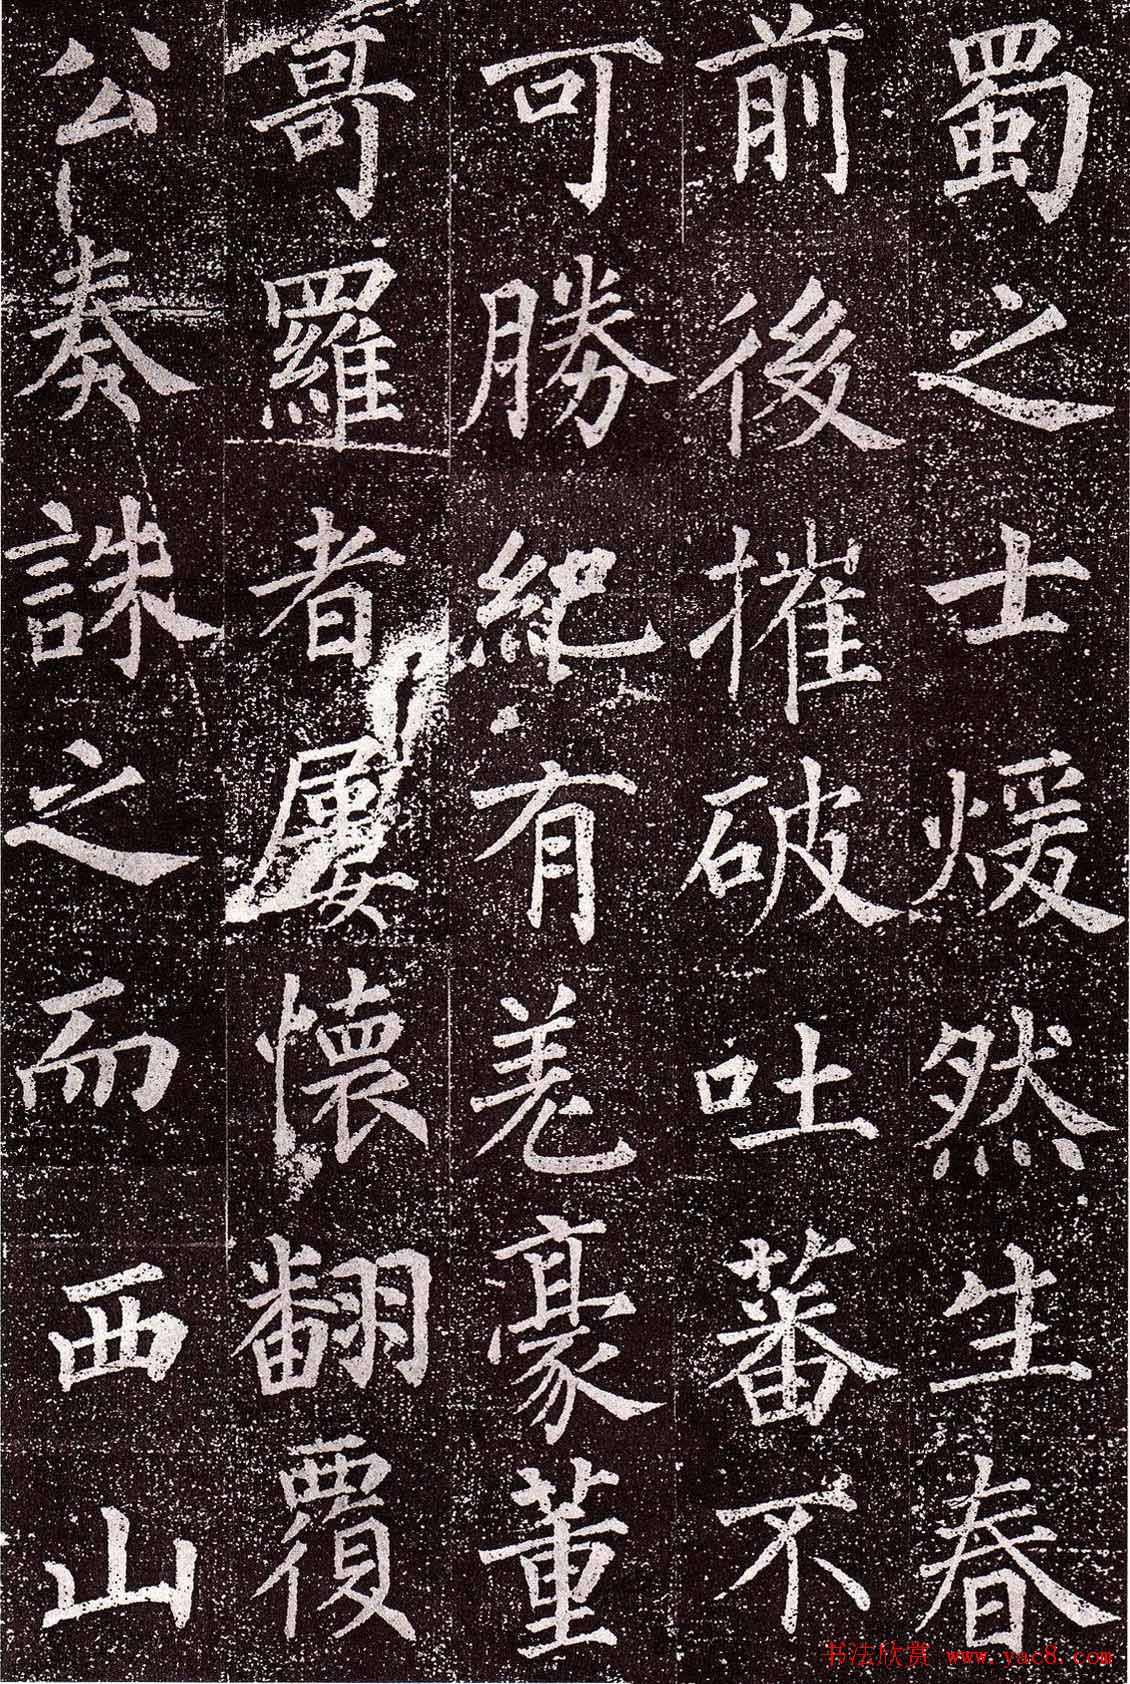 蜀之士煖然生春
前後摧破吐蕃不
可勝紀有羌豪董
哥羅者屢懷翻覆
公奏誅之而西山
书法欣赏 www.yac8.com